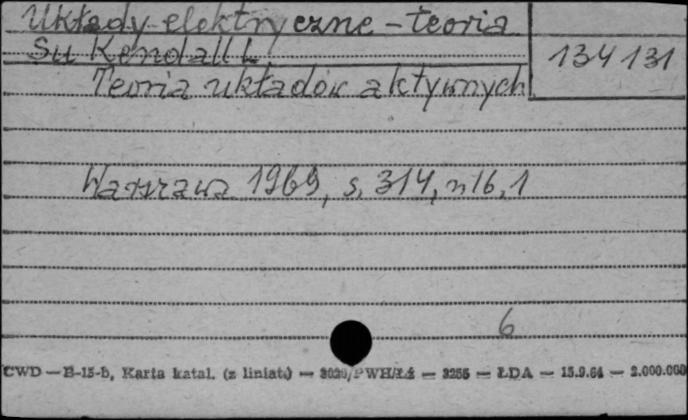 Układy elektryczne - teoria
Su Kendall L.
134131
Teoria układów aktywnych
Warszawa 1969, s. 314, n 16, 1
6
CWD — B-15-b, Karta katal. (z liniat.) — 3020/PWH/Łź — 3255 — ŁDA — 15.9.64 — 2.000.000